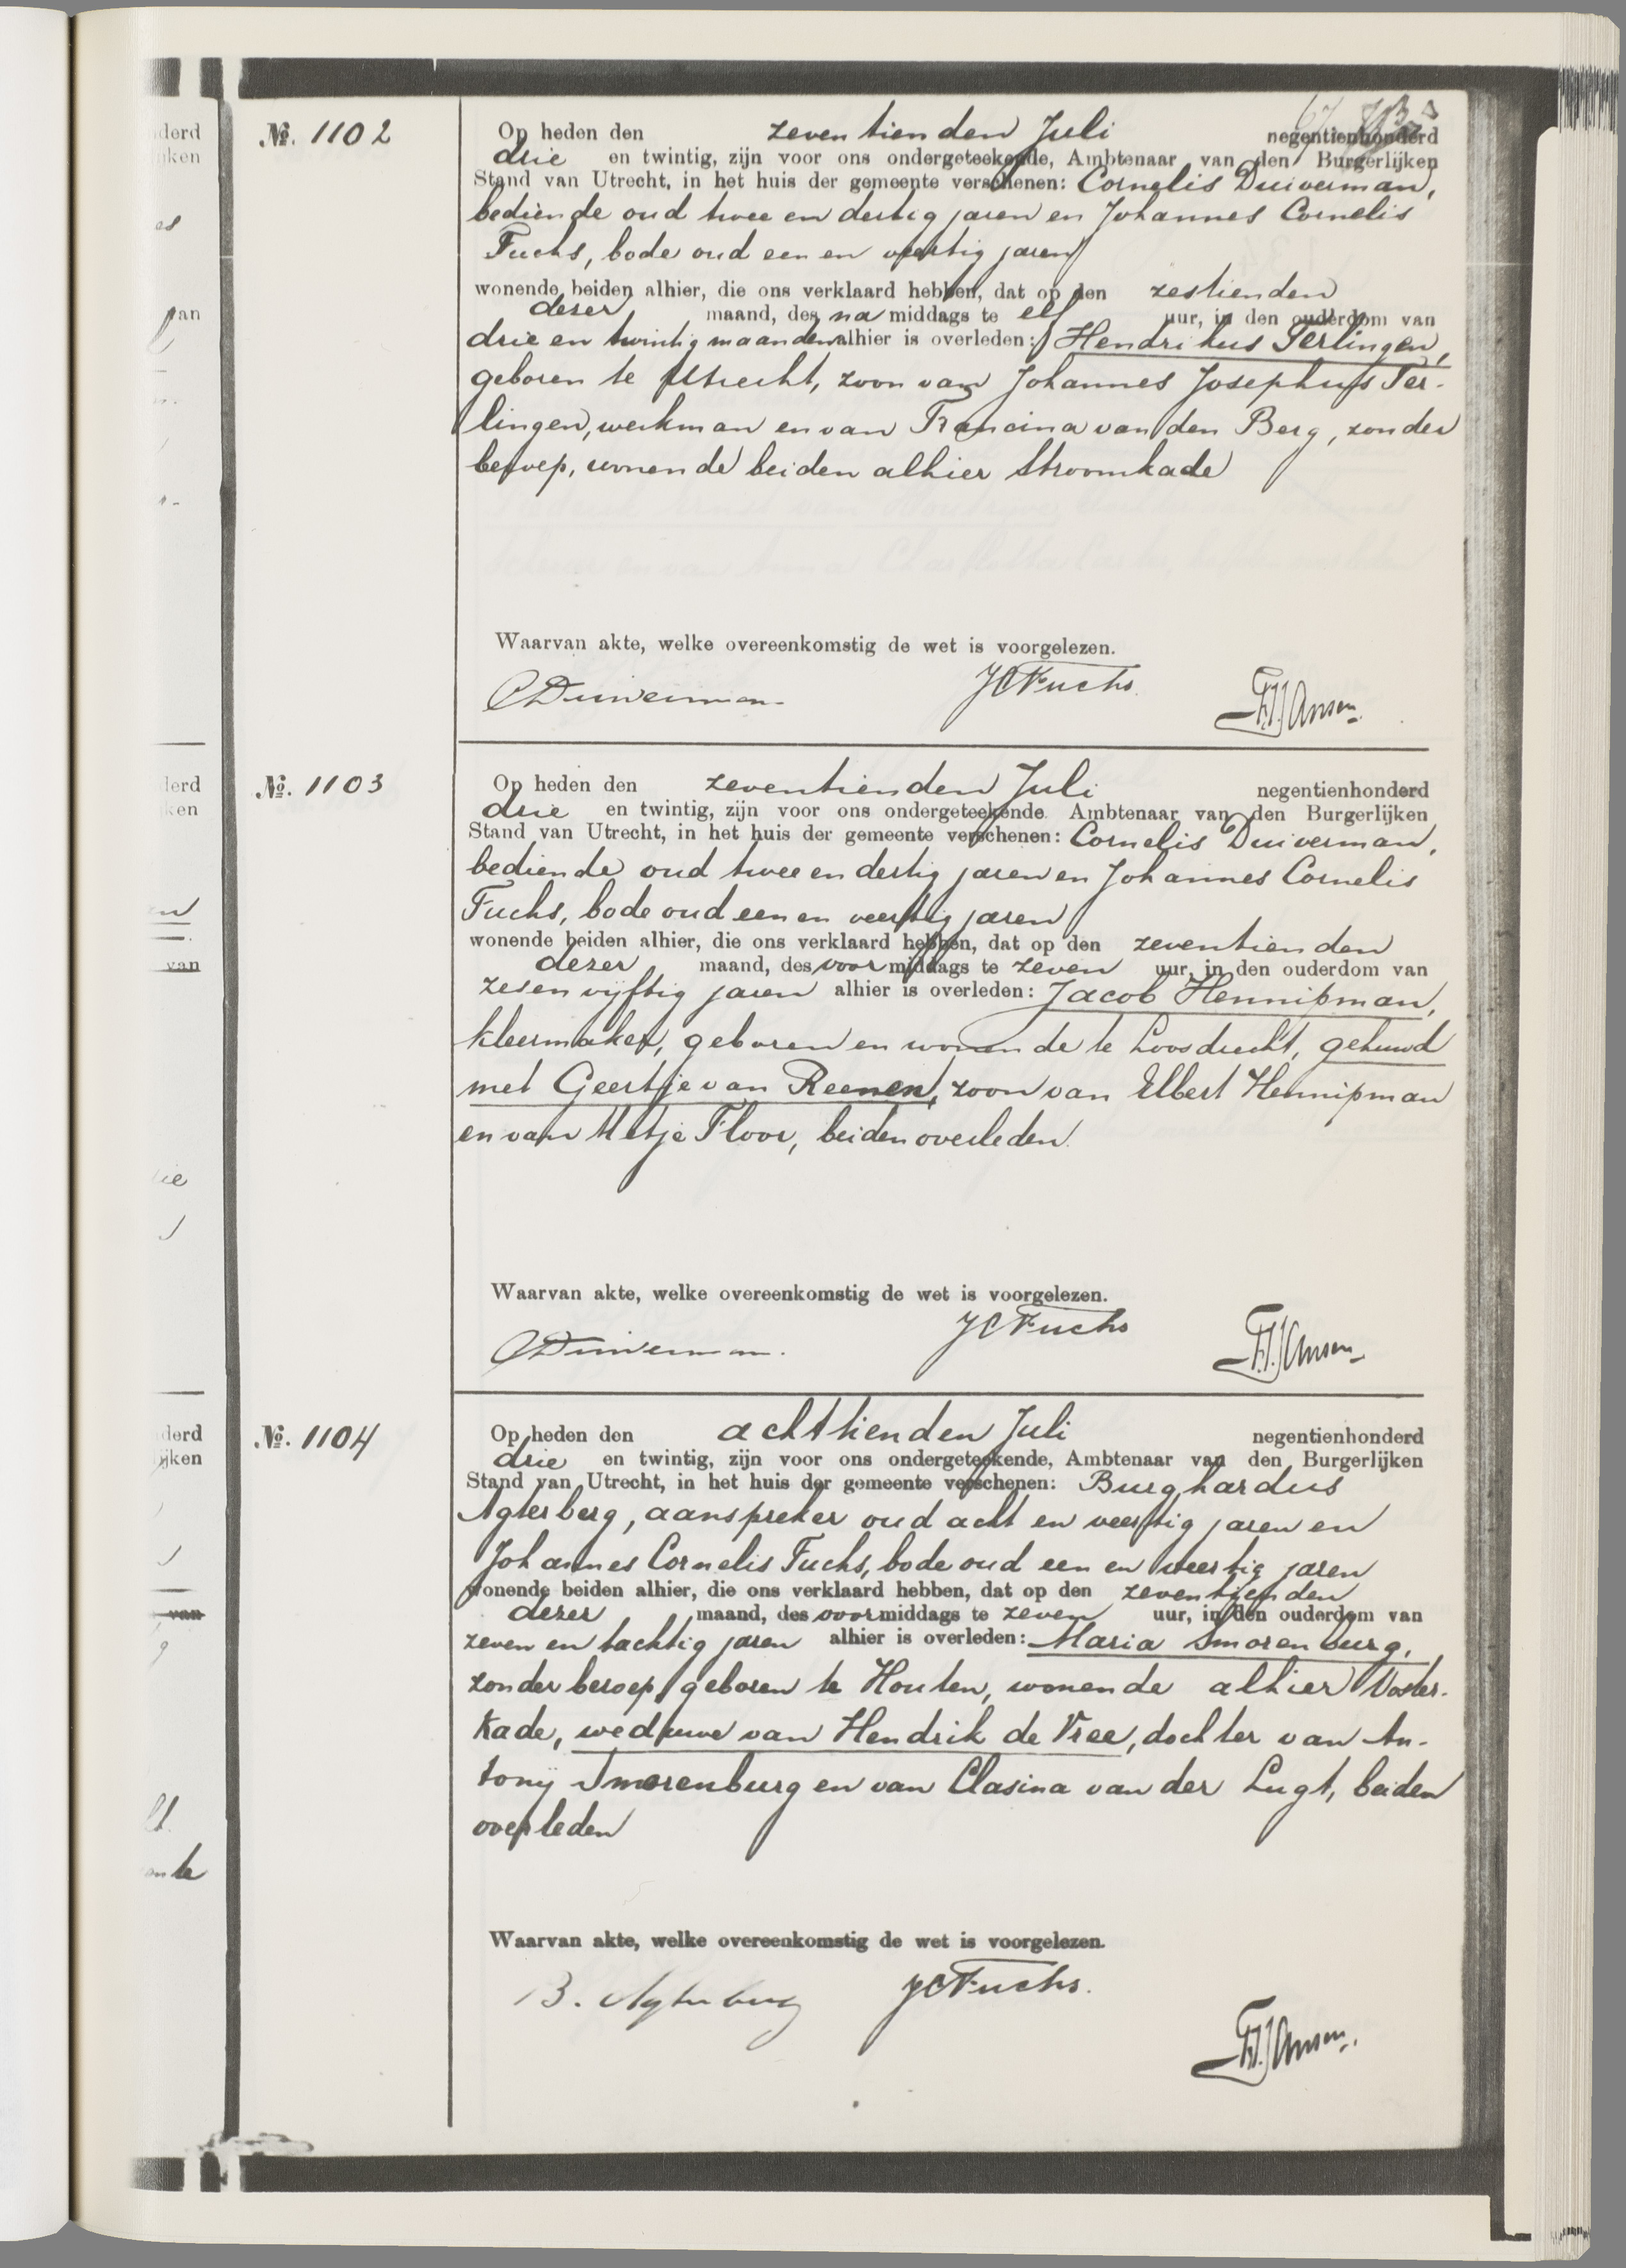 №. 1102
Op heden den zeventienden Juli negentienhonderd
drie en twintig, zijn voor ons ondergeteekende, Ambtenaar van den Burgerlijken
Stand van Utrecht, in het huis der gemeente verschenen: Cornelis Duiverman,
bediende oud twee en dertig jaren en Johannes Cornelis
Fuchs, bode oud een en veertig jaren
wonende beiden alhier, die ons verklaard hebben, dat op den zestienden
dezer maand, des na middags te elf uur, in den ouderdom van
drie en twintig maanden alhier is overleden: Hendrikus Terlingen,
geboren te Utrecht, zoon van Johannes Josephus Ter-
lingen, werkman en van Francina van den Berg, zonder
beroep, wonende beiden alhier Stroomkade
Waarvan akte, welke overeenkomstig de wet is voorgelezen.
CDuiverman. JCFuchs. F.J.Jansen.
№. 1103
Op heden den zeventienden Juli negentienhonderd
drie en twintig, zijn voor ons ondergeteekende. Ambtenaar van den Burgerlijken
Stand van Utrecht, in het huis der gemeente verschenen: Cornelis Duiverman,
bediende oud twee en dertig jaren en Johannes Cornelis
Fuchs, bode oud een en veertig jaren
wonende beiden alhier, die ons verklaard hebben, dat op den zeventienden
dezer maand, des voor middags te zeven uur, in den ouderdom van
zes en vijftig jaren alhier is overleden: Jacob Hennipman,
kleermaker, geboren en wonende te Loosdrecht, gehuwd
met Geertje van Reenen, zoon van Elbert Hennipman
en van Metje Floor, beiden overleden.
Waarvan akte, welke overeenkomstig de wet is voorgelezen.
CDuiverman. JCFuchs F.J.Jansen
№. 1104
Op heden den achttienden Juli negentienhonderd
drie en twintig, zijn voor ons ondergeteekende, Ambtenaar van den Burgerlijken
Stand van Utrecht, in het huis der gemeente verschenen: Burghardus
Agterberg, aanspreker oud acht en veertig jaren en
Johannes Cornelis Fuchs, bode oud een en veertig jaren
wonende beiden alhier, die ons verklaard hebben, dat op den zeventienden
dezer maand, des voormiddags te zeven uur, in den ouderdom van
zeven en tachtig jaren alhier is overleden: Maria Smorenburg,
zonder beroep, geboren te Houten, wonende alhier Ooster-
kade, weduwe van Hendrik de Vree, dochter van An-
tonij Smorenburg en van Clasina van der Lugt, beiden
overleden
Waarvan akte, welke overeenkomstig de wet is voorgelezen.
B. Agterberg JCFuchs. F.J.Jansen.